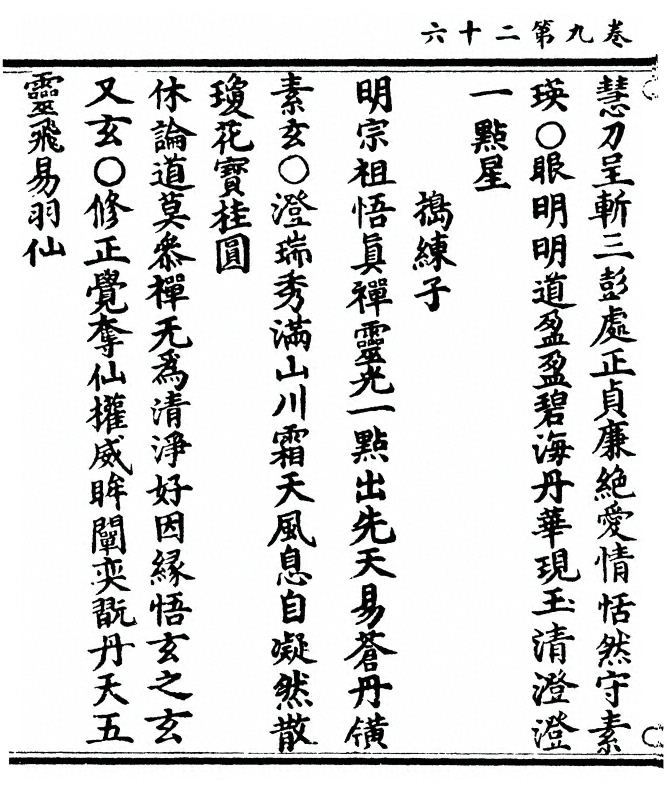 卷九第二十六
慧刀呈斬三彭處正貞廉絶愛情恬然守素
瑛〇眼明明道盈盈碧海丹華現玉清澄澄
一點星
搗練子
明宗祖悟眞禪靈光一點出先天易蒼丹鐨
素玄〇澄瑞秀滿山川霜天風息自凝然散
瓊花寳桂圓
休論道莫叅禪无爲清淨好因緣悟玄之玄
又玄〇修正覺奪仙權威眸闡奕翫丹天五
靈飛易羽仙